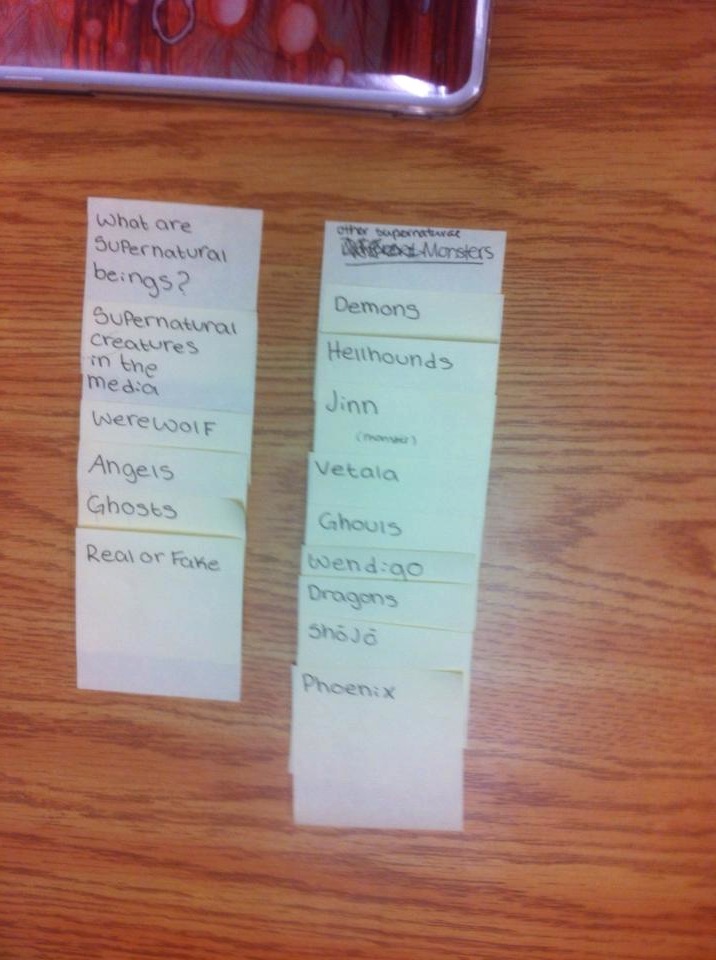 What are
Supernatural
beings?
Supernatural
creatures
in the
media
Werewolf
Angels
Ghosts
Real or Fake
other supernatural
Monsters
Demons
Hellhounds
Jinn
(monster)
Vetala
Ghouls
Wendigo
Dragons
Shōjō
Phoenix